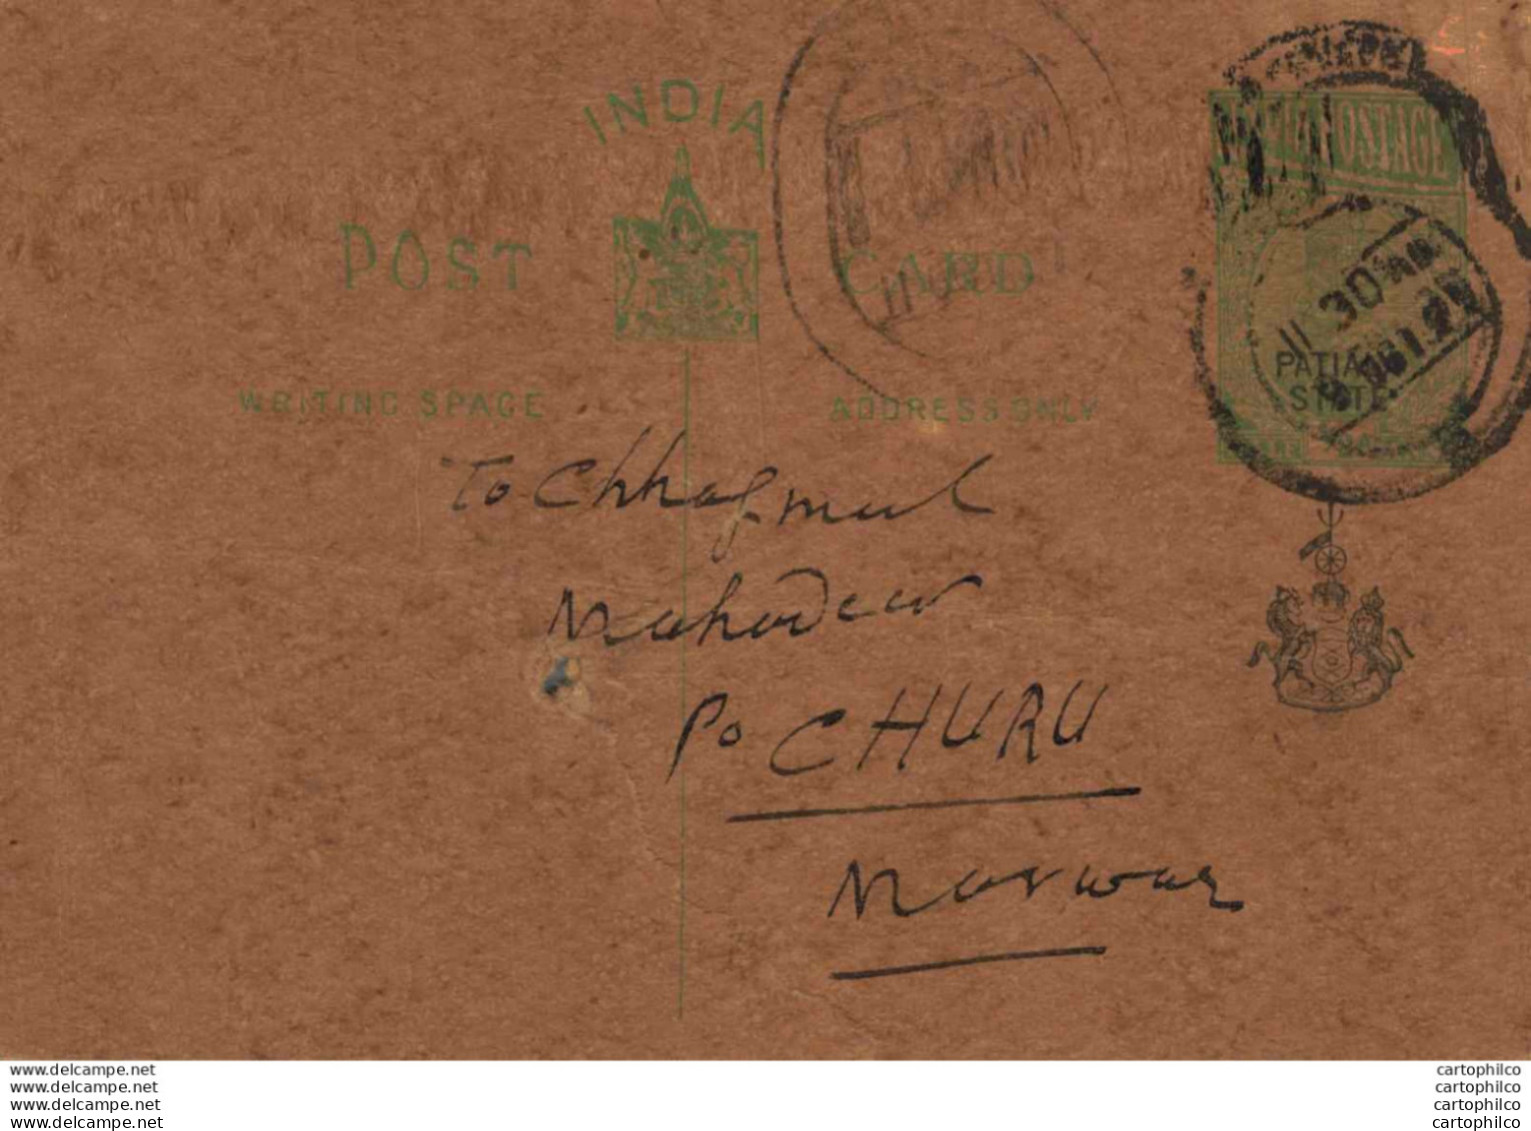 INDIA
POSTAGE
POST CARD
11 30 AM
PATIALA
STATE
WRITING SPACE
ADDRESS ONLY
To Chhagmul
Mahadeo
Po CHURU
Marwar
www.delcampe.net
www.delcampe.net
www.delcampe.net
www.delcampe.net
cartophilco
cartophilco
cartophilco
cartophilco